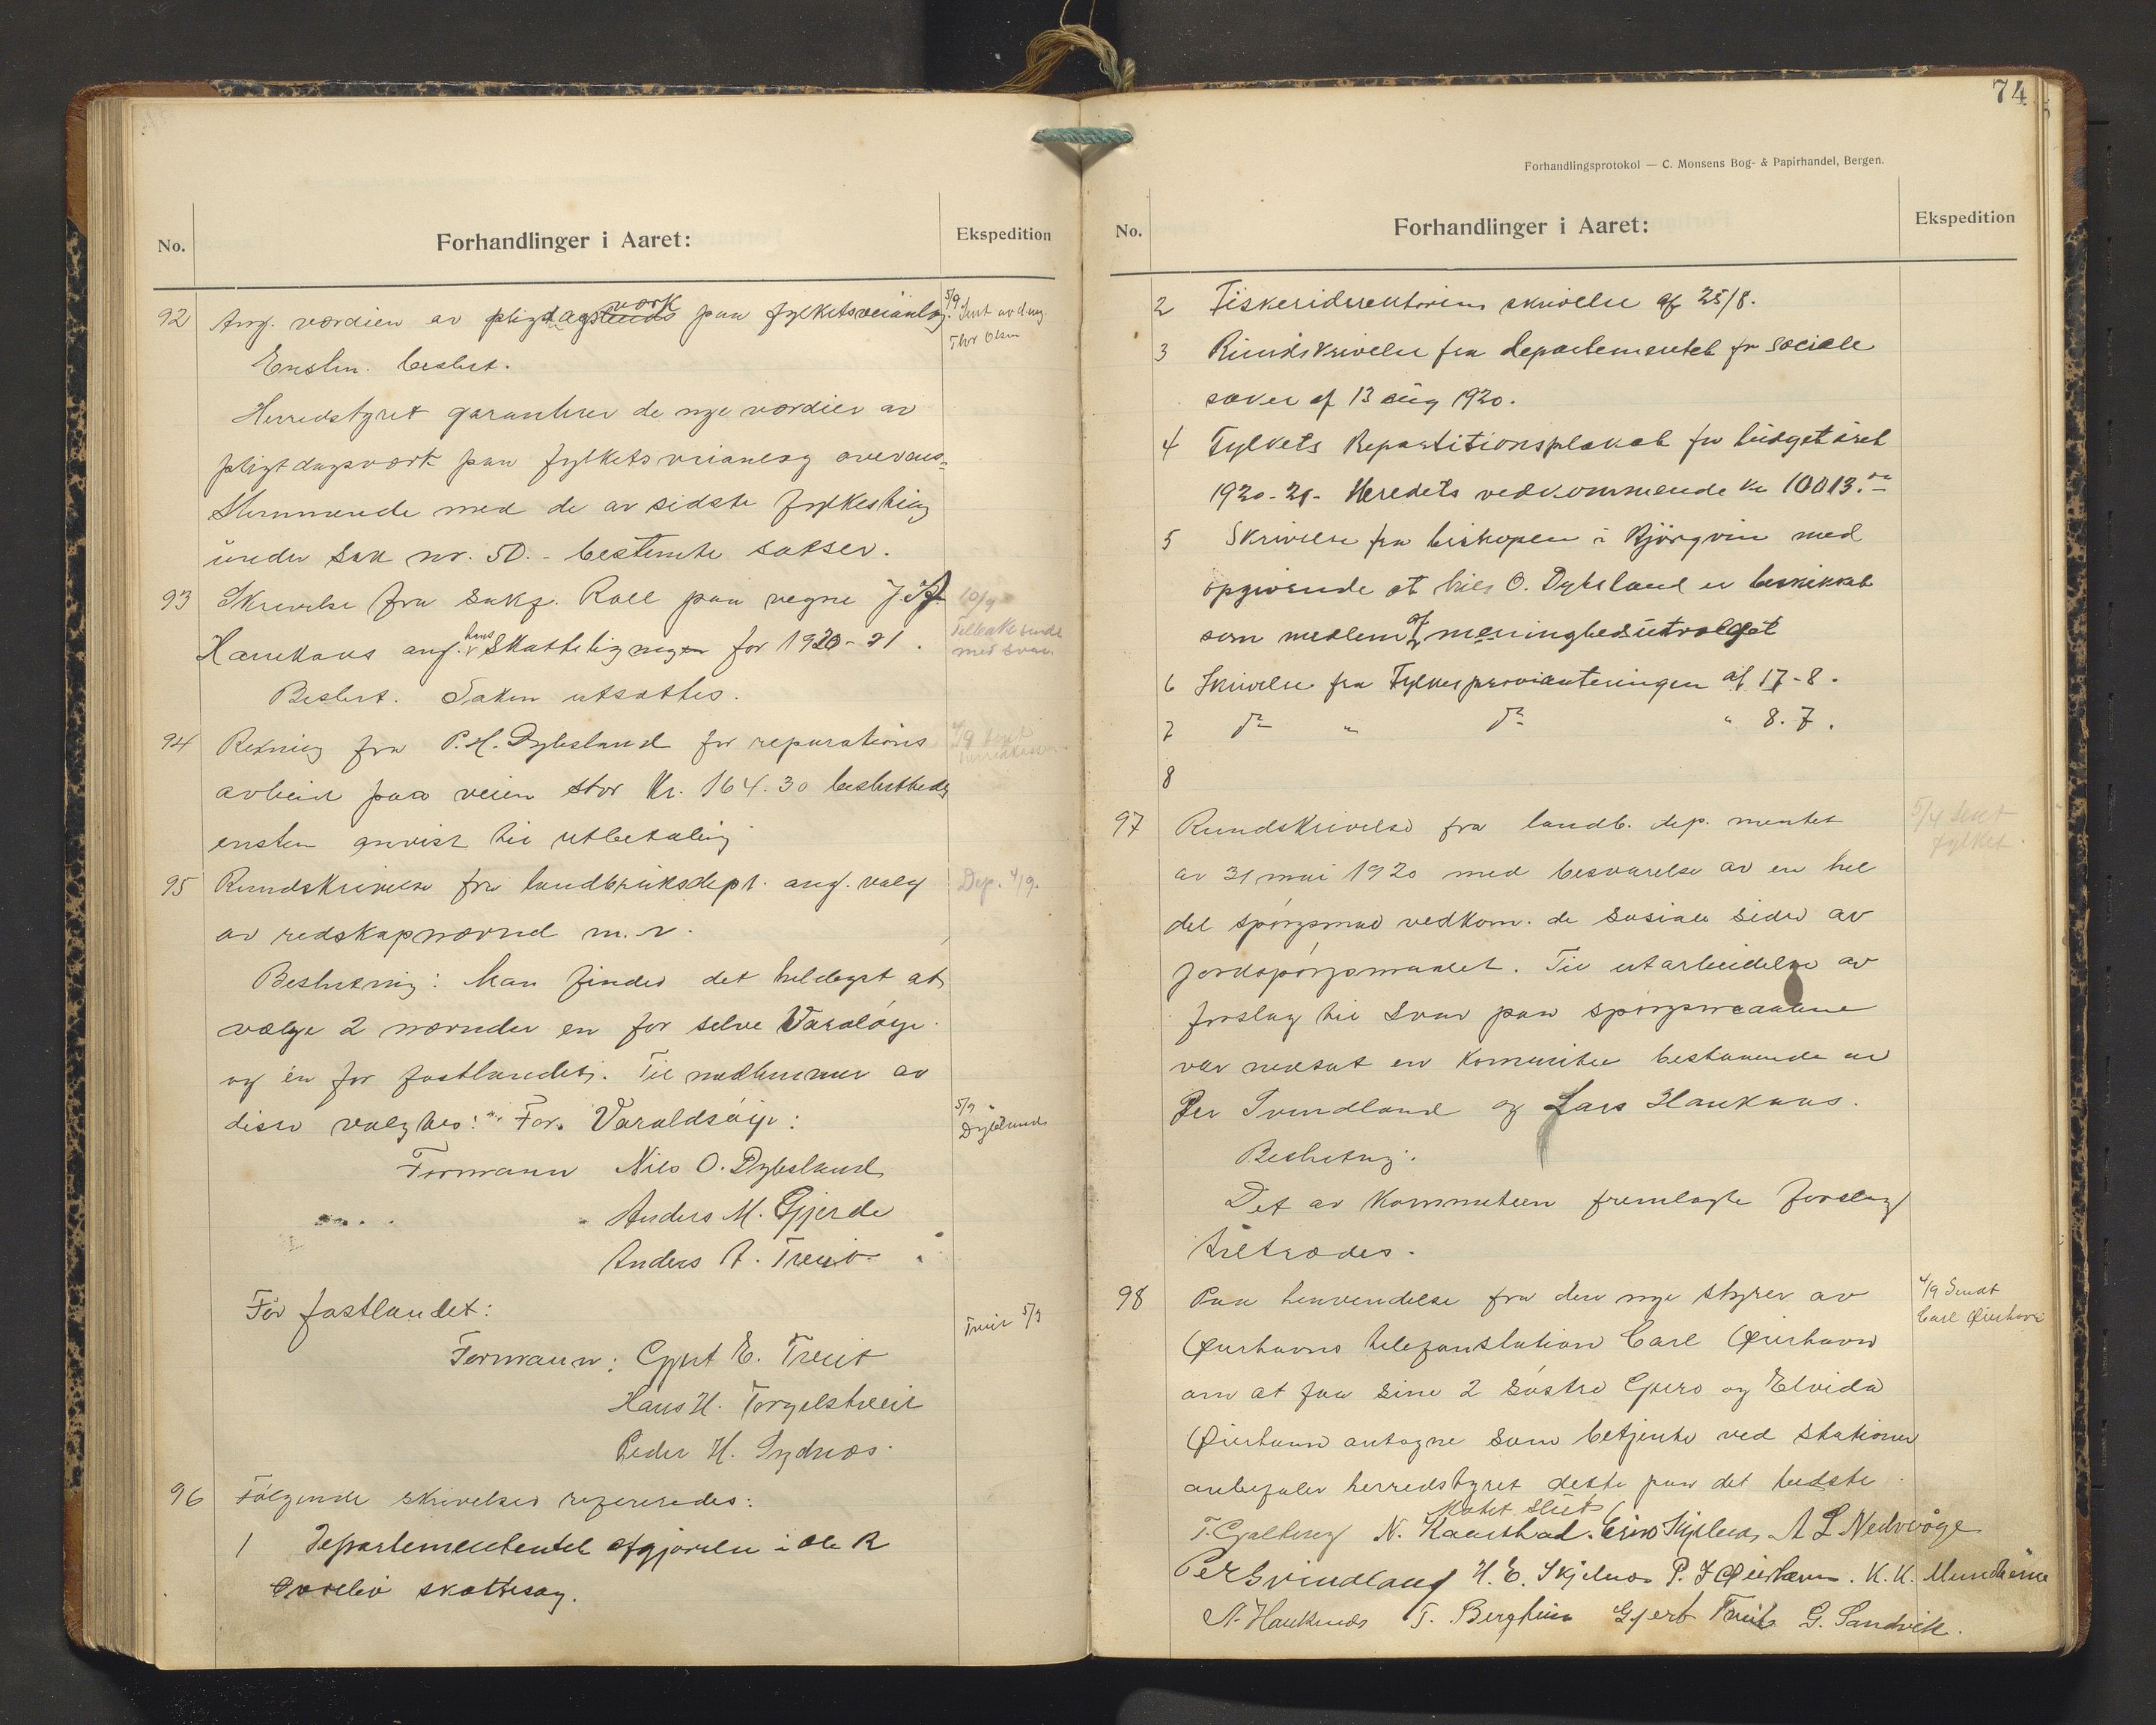 No.
Forhandlinger i Aaret:
Ekspedition
92 Ang. værdien av pligtdagsværk paa fylketsveianlæg.
5/9 Sent avd.ing.
Thor Olsen
Enstem. beslut.
Herredstyret garanterer de nye værdier av
pligtdagsværk paa fylketsveianlæg overens-
stemmende med de av sidste fylkesting
under sak nr. 50.- bestemte satser.
93 Skrivelse fra Sakf. Roll paa vegne J. H.
Haukaas ang. hans Skatteligningen for 1920-21.
10/9
Tilbakesendt
med svar.
Beslut. Saken utsattes.
94 Rekning fra P. H. Dybsland for reparations
arbeid paa veien stor Kr. 164.30 besluttedes
enstem anvist til utbetaling
95 Rundskrivelse fra landbruksdept. ang. valg
Dep. 4/9.
av redskapnævnd m. v.
Beslutning: Man finder det heldigst at
vælge 2 nævnder en for selve Varaldsøy
og en for fastlandet. Til medlemmer av
disse valgtes: For Varaldsöy:
5/9
Dybsland
Formann Nils O. Dybsland
Anders M. Gjerde
Anders A. Treit
For fastlandet:
Treit 5/9
Formann: Gjert E. Treit
Hans H. Torgelstveit
Peder H. Sydnes.
96 Følgende skrivelser refereredes:
1 Departemententet afgjørelse i Ole R
skattesag.
74
Forhandlingsprotokol — C. Monsens Bog- & Papirhandel, Bergen.
No.
Forhandlinger i Aaret:
Ekspedition
2 Fiskeridirektørens skrivelse af 25/8.
3 Rundskrivelse fra departementet for sociale
saker af 13 aug 1920.
4 Fylkets Repartitionsplakat for budgetåret
1920-21- Heredets vedkommende kr 10013.00
5 Skrivelse fra biskopen i Björgvin med
opgivende at Nils O. Dybsland er beskikket
som medlem af meninghedsutvalget
6 Skrivelse fra Fylkesprovianteringen af 17-8.
7 do " do " 8.7.
8
97 Rundskrivelse fra landb. dep. mentet
5/9 Sent
fylket.
av 31 mai 1920 med besvarelse av en hel
del spörgsmaal vedkom. de sosiale sider av
jordspörgsmaalet. Til utarbeidelse av
forslag til svar paa spörgsmaalene
var nedsat en komite bestaaende av
Per Svindland og Lars Haukaas.
Beslutning.
Det av Kommiteen fremlagte forslag
tiltrædes.
98 Paa henvendelse fra den nye styrer av
4/9 Sendt
Carl Øierhavn
Øierhavns telefonstation Carl Øierhavn
om at faa sine 2 söstre Gjero og Elvida
Øierhavn antagne som betjente ved stationen
anbefaler herredstyret dette paa det bedste.
Møtet slut
T. Gjalberg N. Kaarstad. Erik Skjelnes, A L Nedrevåge
Per Svindland H. E. Skjelnes P. J Øierhavn. K. K. Mundheim
A. Haukenæs T. Bergheim Gjert Treit G. Sandvik.